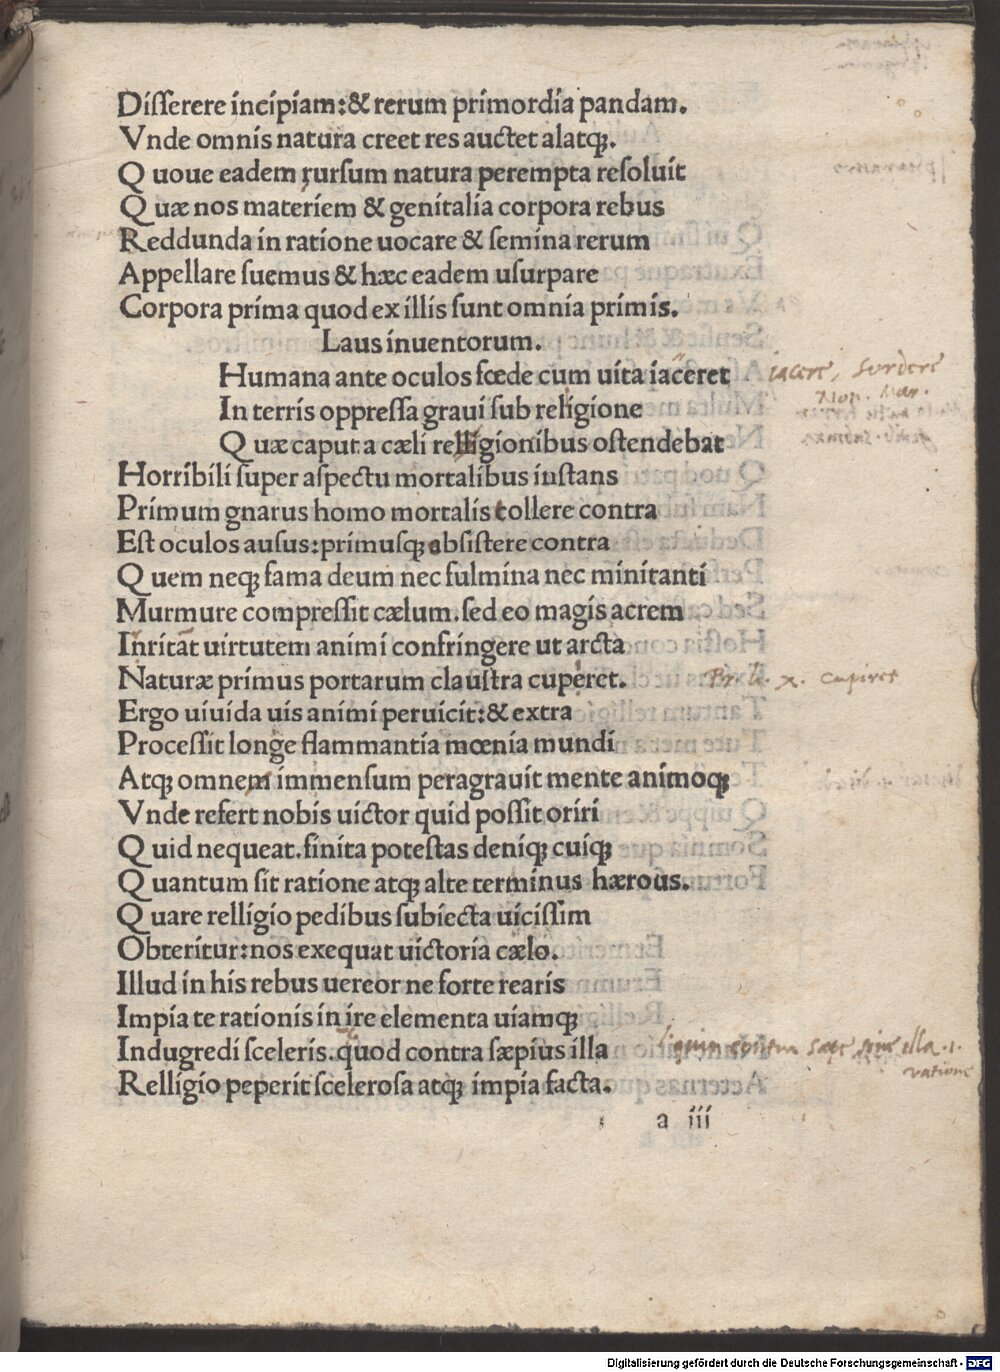 Diſſerere incipiam:& rerum primordia pandam.
Vnde omnis natura creet res auctet alatqꝫ.
Q uoue eadem rurſum natura perempta reſoluit
Q uæ nos materiem & genitalia corpora rebus
Reddunda in ratione uocare & ſemina rerum
Appellare ſuemus & hæc eadem uſurpare
Corpora prima quod ex illis ſunt omnia primis.
Laus inuentorum.
Humana ante oculos fœde cum uita iaceret
iacere, sordere
Non. Mar.
In terris oppreſſa graui ſub religione
Q uæ caput a cæli relligionibus oſtendebat
Horribili ſuper aſpectu mortalibus inſtans
Primum gnarus homo mortalis tollere contra
Eſt oculos auſus:primusqꝫ obſiſtere contra
Q uem neqꝫ fama deum nec fulmina nec minitanti
Murmure compreſſit cælum.ſed eo magis acrem
Inritat uirtutem animi confringere ut arcta
Naturæ primus portarum clauſtra cuperet.
Pr. li. x. cupiret
Ergo uiuida uis animi peruicit:& extra
Proceſſit longe flammantia mœnia mundi
Atqꝫ omnem immenſum peragrauit mente animoqꝫ
Vnde refert nobis uictor quid poſſit oriri
Q uid nequeat.finita poteſtas deniqꝫ cuiqꝫ
Q uantum ſit ratione atqꝫ alte terminus hærous.
Q uare relligio pedibus ſubiecta uiciſſim
Obteritur:nos exequat uictoria cælo.
Illud in his rebus uereor ne forte rearis
Impia te rationis in ire elementa uiamqꝫ
Indugredi ſceleris.quod contra ſæpius illa
illa .i.
ratione
Relligio peperit ſceleroſa atqꝫ impia facta.
a iii
Digitalisierung gefördert durch die Deutsche Forschungsgemeinschaft - DFG